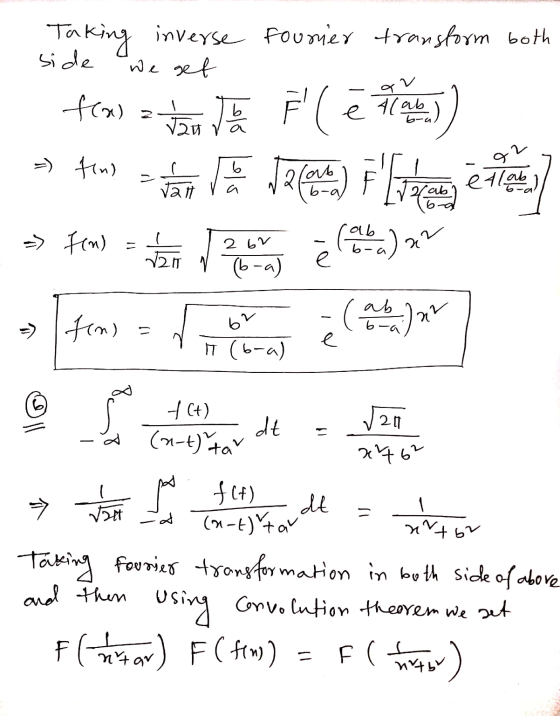 Taking inverse Fourier transform both
side we get
f(x) = 1/√2π √(b/a) F⁻¹( e^-(α²/4(ab/b-a)) )
⇒ f(x) = 1/√2π √(b/a) √(2(ab/b-a)) F⁻¹[ 1/√(2(ab/b-a)) e^-(α²/4(ab/b-a)) ]
⇒ f(x) = 1/√2π √(2b²/(b-a)) e^-(ab/b-a)x²
⇒ f(x) = √(b²/π(b-a)) e^-(ab/b-a)x²
⑥ ∫_-∞^∞ f(t)/((x-t)²+a²) dt = √2π/(x²+b²)
⇒ 1/√2π ∫_-∞^∞ f(t)/((x-t)²+a²) dt = 1/(x²+b²)
Taking fourier transformation in both side of above
and then using Convolution theorem we get
F(1/(x²+a²)) F(f(x)) = F(1/(x²+b²))